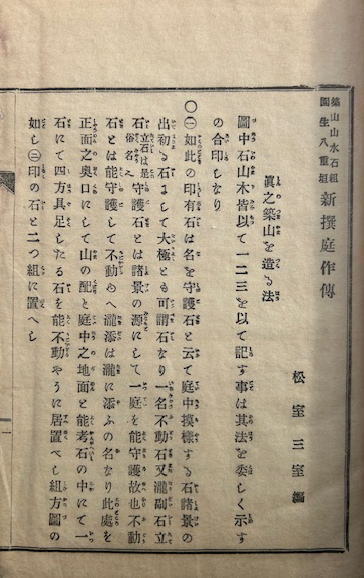 築山山水石組
園生八重垣
新撰庭作傳
松室三室編
眞之築山を造る法
圖中石山木皆以て一二三を以て記す事は其法を委しく示す
の合印しなり
〇㊀如此の印有石は名を守護石と云て庭中摸樣する石諸景の
出初る石まして大極とも可謂石なり一名不動石又瀧副石立
石俗名之立石は是守護石とは諸景の源にして一庭を能守護故也不動
石とは能守護して不動めへ瀧添は瀧に添ふの名なり此處を
正面之奧口にして山の配と庭中之地面と能考石の中にて一
石にて四方具足したる石を能不動やうに居置べし組方圖の
如し㊁印の石と二つ組に置へし
一